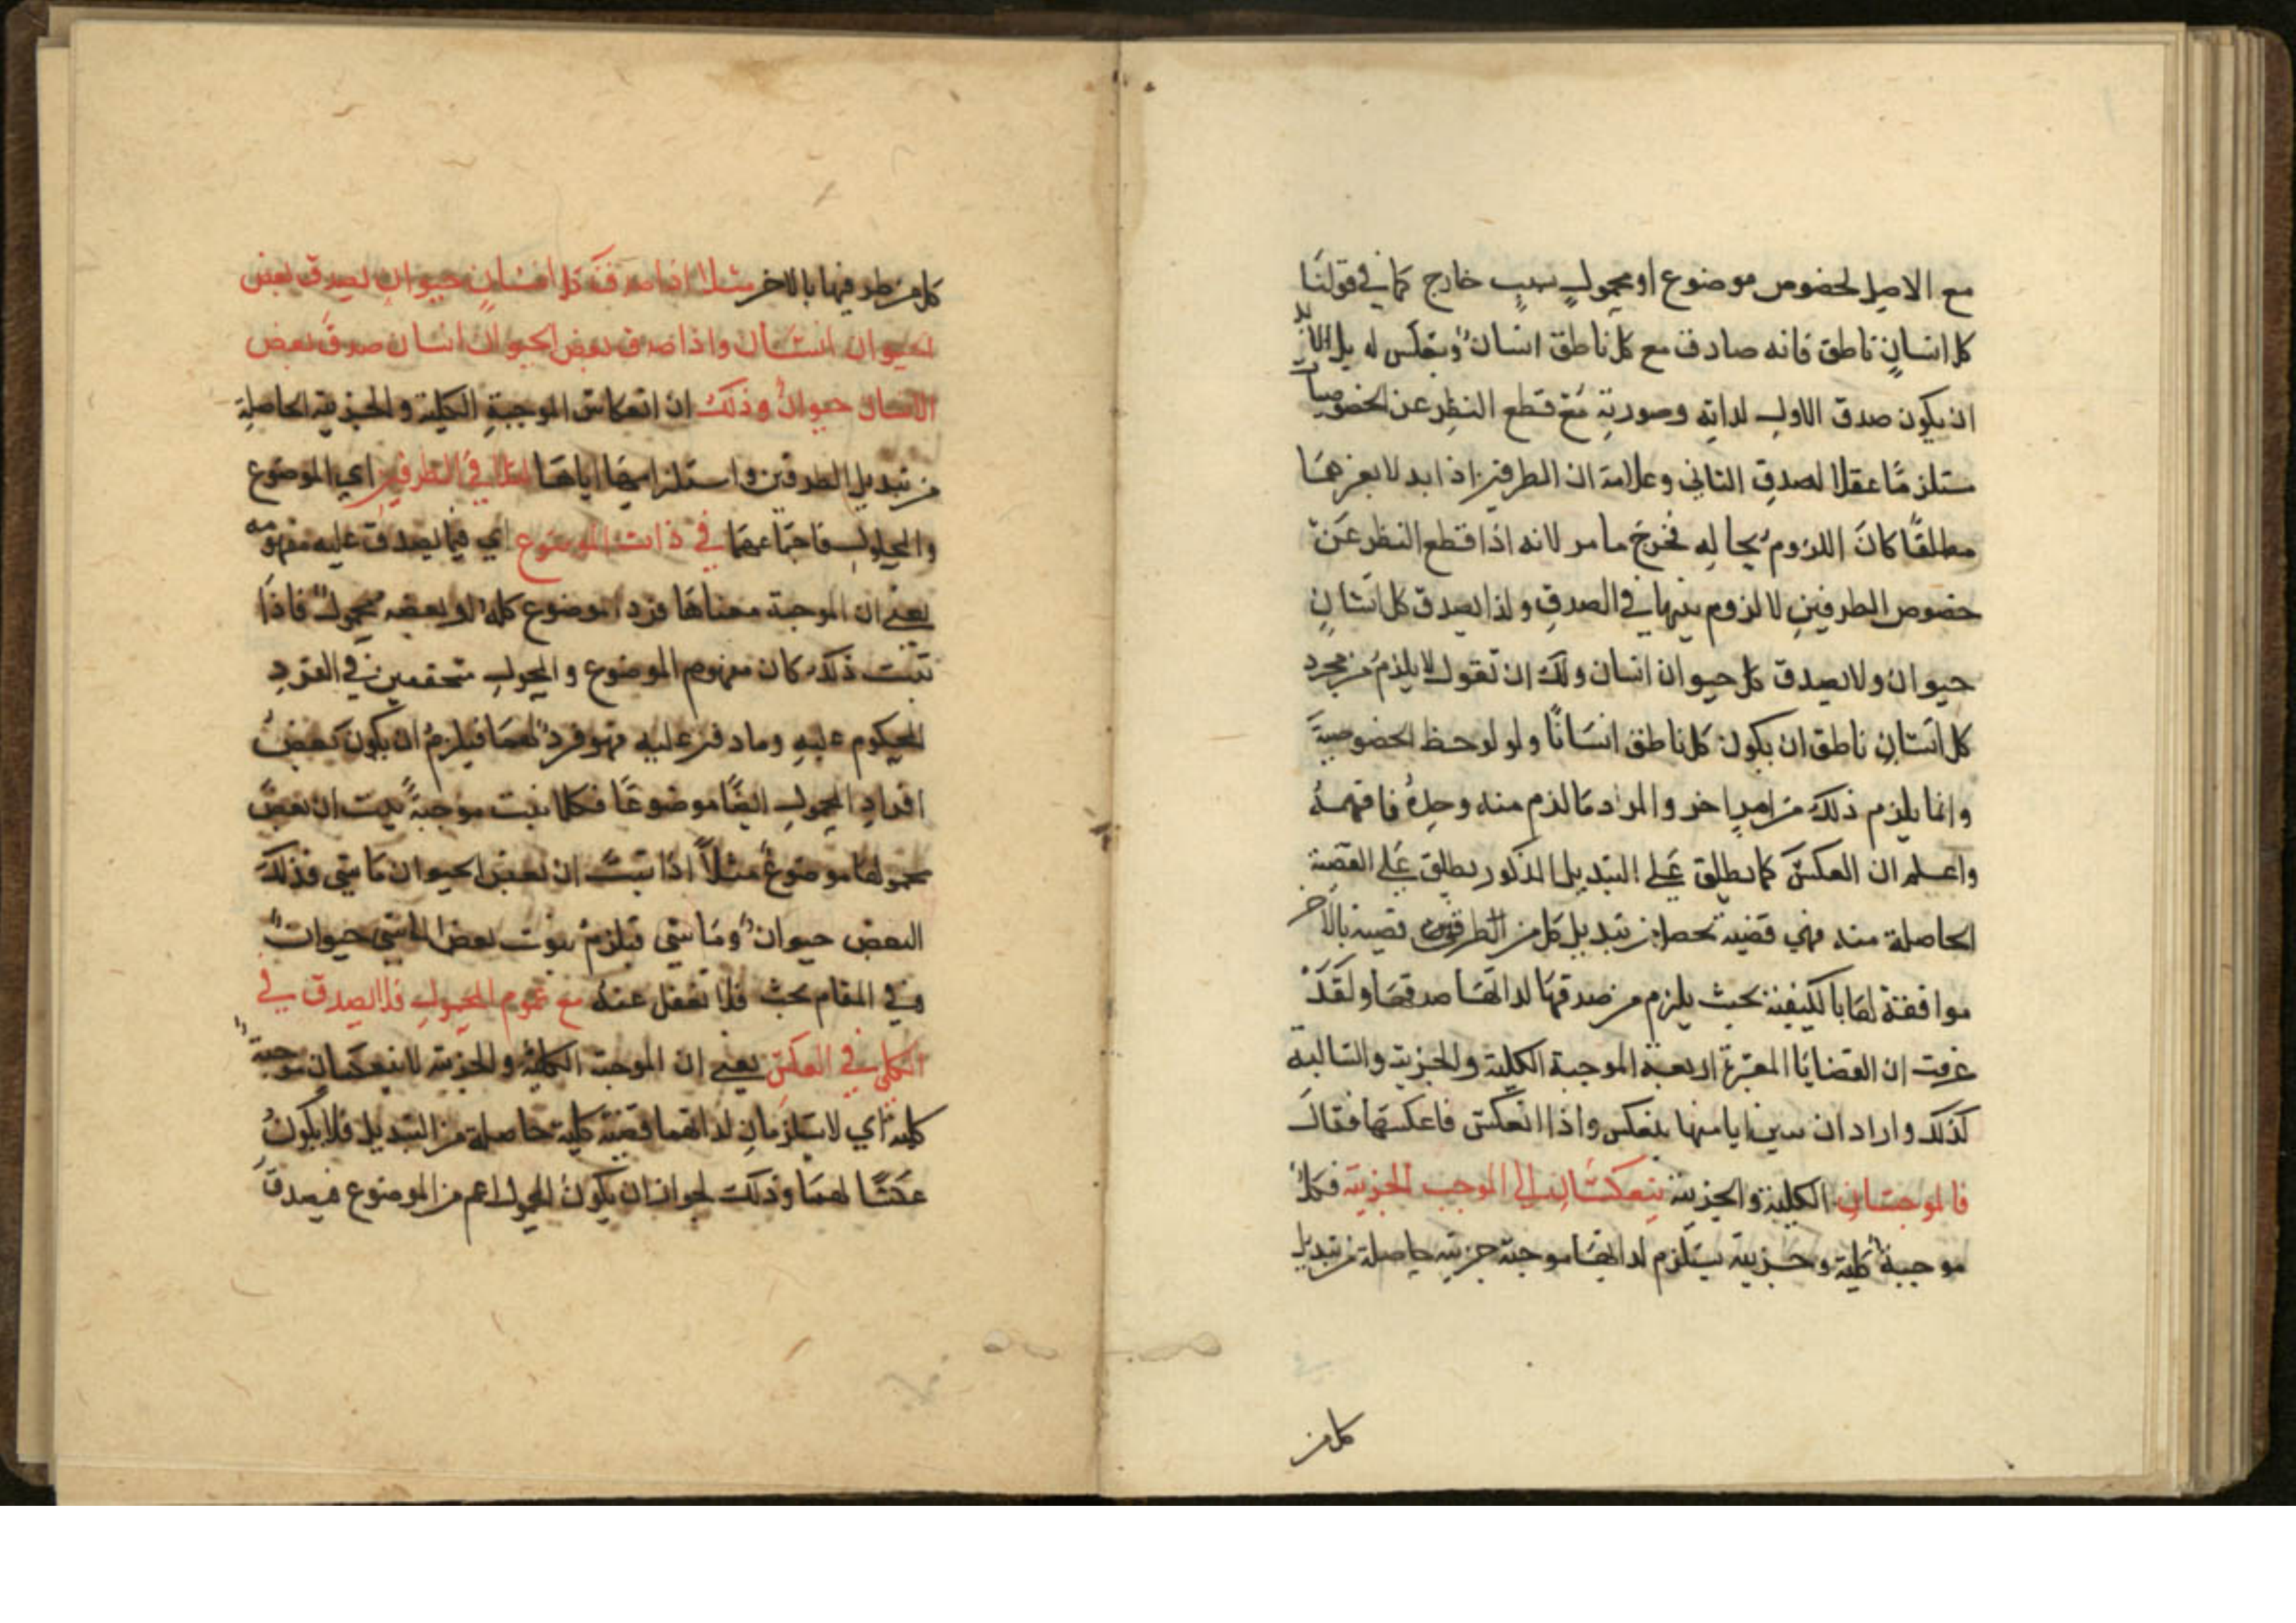 مع الاصل لخصوص موضوع او محمول بسبب خارج كما في قولنا
كل انسان ناطق فانه صادق مع كل ناطق انسان وينعكس له بل لابد
ان يكون صدق الاول لذاته وصورته مع قطع النظر عن الخصوصيات
مستلزما عقلا لصدق الثاني وعلامته ان الطرفين اذا بدلا بغيرهما
مطلقا كان اللزوم بحاله فخرج ما مر لانه اذا قطع النظر عن
خصوص الطرفين لا لزوم بينهما في الصدق ولذا يصدق كل انسان
حيوان ولا يصدق كل حيوان انسان ولك ان تقول لا يلزم من مجرد
كل انسان ناطق ان يكون كل ناطق انسانا ولو لوحظ الخصوصية
وانما يلزم ذلك من امر اخر والمراد ما لزم منه وحده فافهمه
واعلم ان العكس كما يطلق على التبديل المذكور يطلق على القضية
الحاصلة منه فهي قضية تحصل من تبديل كل من الطرفين قضية بالاخر
موافقة لها بالكيفية بحيث يلزم من صدقها لذاتها صدقها ولقد
عرفت ان القضايا المعتبرة اربعة الموجبة الكلية والجزية والسالبة
كذلك واراد ان يبين ايا منها ينعكس واذا انعكس فاعكسها فقال
فالموجبتان الكلية والجزية ينعكسان الى الموجب الجزية فكل
موجبة كلية وجزية يستلزم لذاتها موجبة جزية حاصلة من تبديل
كل من
كل من طرفيها بالاخر مثلا اذا صدق كل انسان حيوان يصدق بعض
الحيوان انسان واذا صدق بعض الحيوان انسان صدق بعض
الانسان حيوان وذلك ان انعكاس الموجبة الكلية والجزية الحاصلة
من تبديل الطرفين واستلزامهما اياها في الطرفين اي الموضوع
والمحمول فاجتماعهما في ذات الموضوع اي فيما يصدق عليه مفهومه
يعني ان الموجبة معناها فرد الموضوع كله او بعضه محمول فاذا
ثبت ذلك كان مفهوم الموضوع والمحمول متحققين في الفرد
المحكوم عليه وصادقين عليه فهو فرد لهما فيلزم ان يكون بعض
افراد المحمول ايضا موضوعا فكلما ثبت موجبة يثبت ان بعض
محمولها موضوع مثلا اذا ثبت ان بعض الحيوان ماشي فذلك
البعض حيوان وماشي فيلزم ثبوت بعض الماشي حيوان
وفي المقام بحث فلا تغفل عنه مع عموم المحمول فلا يصدق في
الكلي في العكس يعني ان الموجبة الكلية والجزية لا ينعكسان موجبة
كلية اي لا يستلزمان لذاتهما قضية كلية حاصلة من التبديل فلا يكون
عكسا لهما وذلك لجواز ان يكون المحمول اعم من الموضوع فيصدق